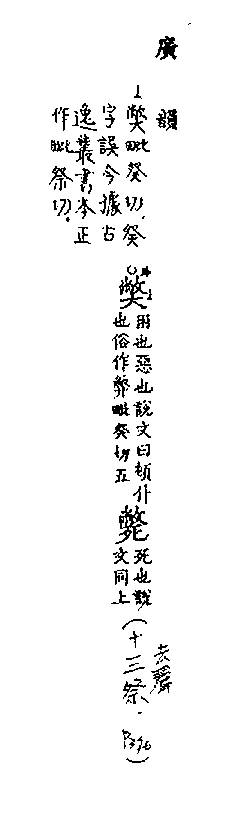 廣韻
1獘毗癸切，癸
字誤今據古
逸叢書本正
作毗祭切。
獘困也惡也說文曰頓仆
也俗作弊毗癸切五
斃死也說
文同上
(十三祭.
去聲